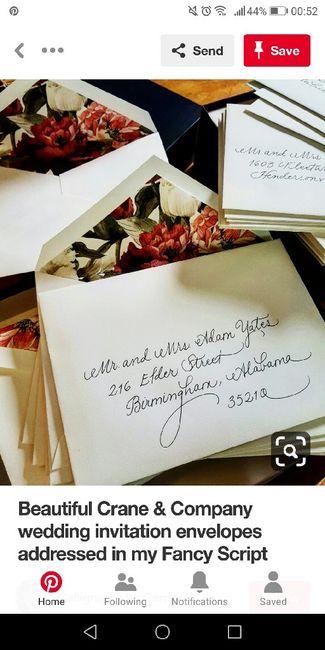 44% 00:52
Send
Save
Mr. and Mrs.
1608
Henderson
Mr. and Mrs. Adam Yates
216 Elder Street
Birmingham, Alabama
35210
Beautiful Crane & Company
wedding invitation envelopes
addressed in my Fancy Script
Home
Following
Notifications
Saved